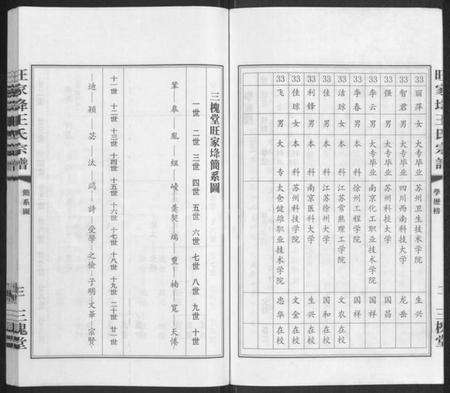 旺家垾王氏宗譜
學歷榜
三槐堂
33 丽萍 女 大专毕业 苏州卫生技术学院 生兴
33 智君 女 大专毕业 四川西南科技大学 龙岳
33 强 男 大专毕业 苏州科技大学 国昌
33 李云 男 大专毕业 南京化工职业技术学院 国祥
33 李春 男 本科 徐州工程学院 国祥
33 洁球 女 本科 江苏常熟理工学院 文农 在校
33 佳 男 本科 江苏徐州大学 国和 在校
33 利锋 男 本科 南京医科大学 生兴 在校
33 佳球 女 本科 苏州科技学院 文金 在校
33 飞 男 大专 太仓健雄职业技术学院 忠华 在校
三槐堂旺家垾簡系圖
一世 二世 三世 四世 五世 六世 七世 八世 九世 十世
十一世 十二世 十三世 十四世 十五世 十六世 十七世 十八世 十九世 二十世 廿一世
旺家垾王氏宗譜
簡系圖
三
三槐堂